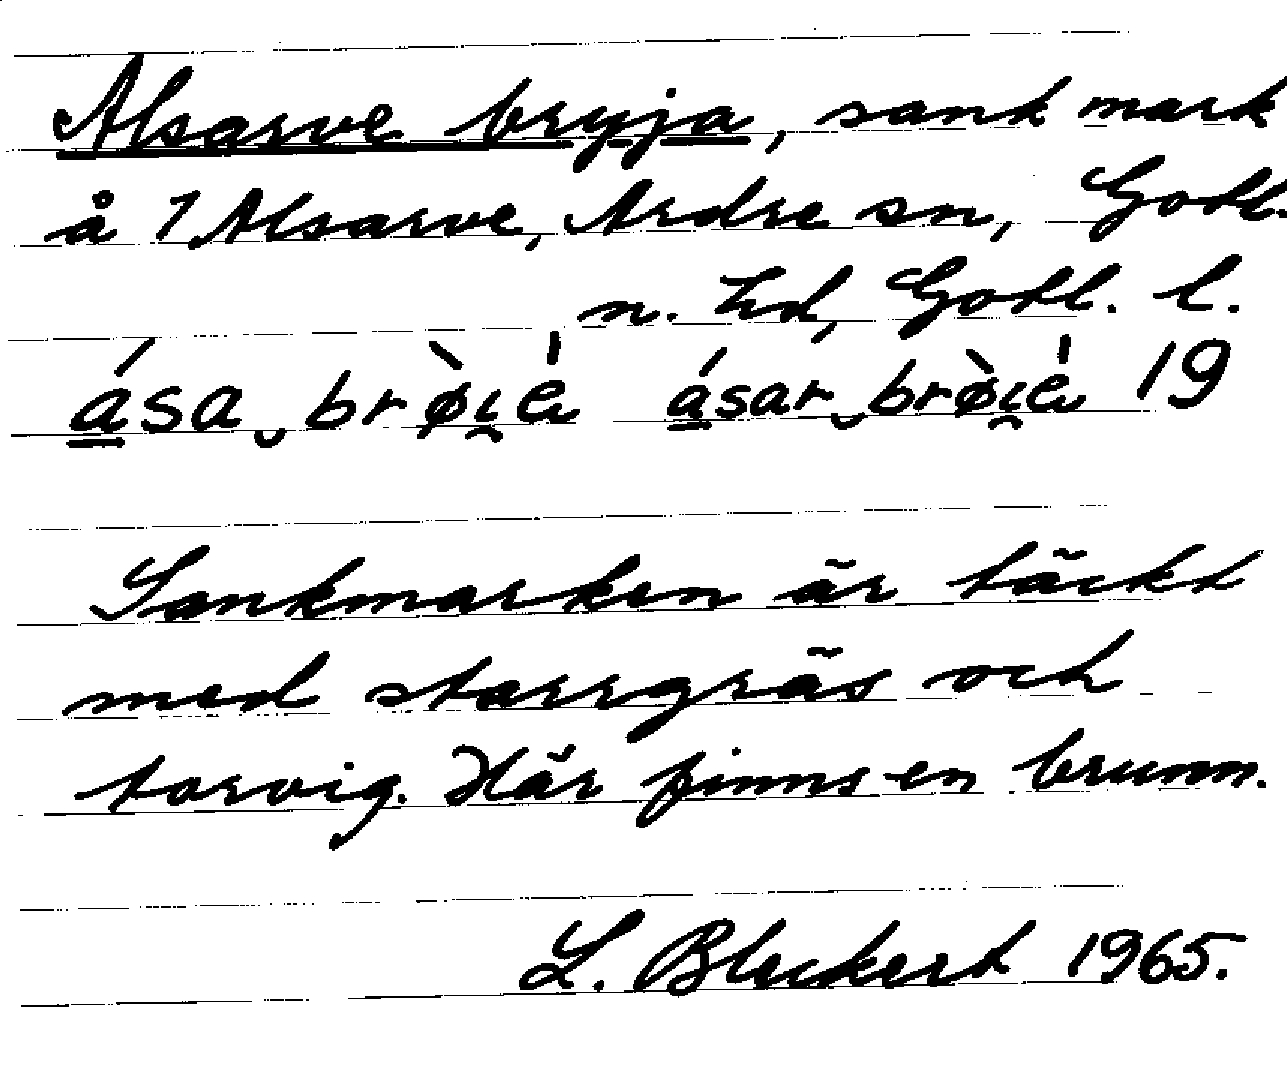 Alsarve bryja, sank mark
å 1 Alsarve, Ardre sn, Gotl.
n. hd, Gotl. l.
ása brø̀i̯è ásar brø̀i̯è 19
Sankmarken är täckt
med starrgräs och
torvig. Här finns en brunn.
L. Bleckert 1965.